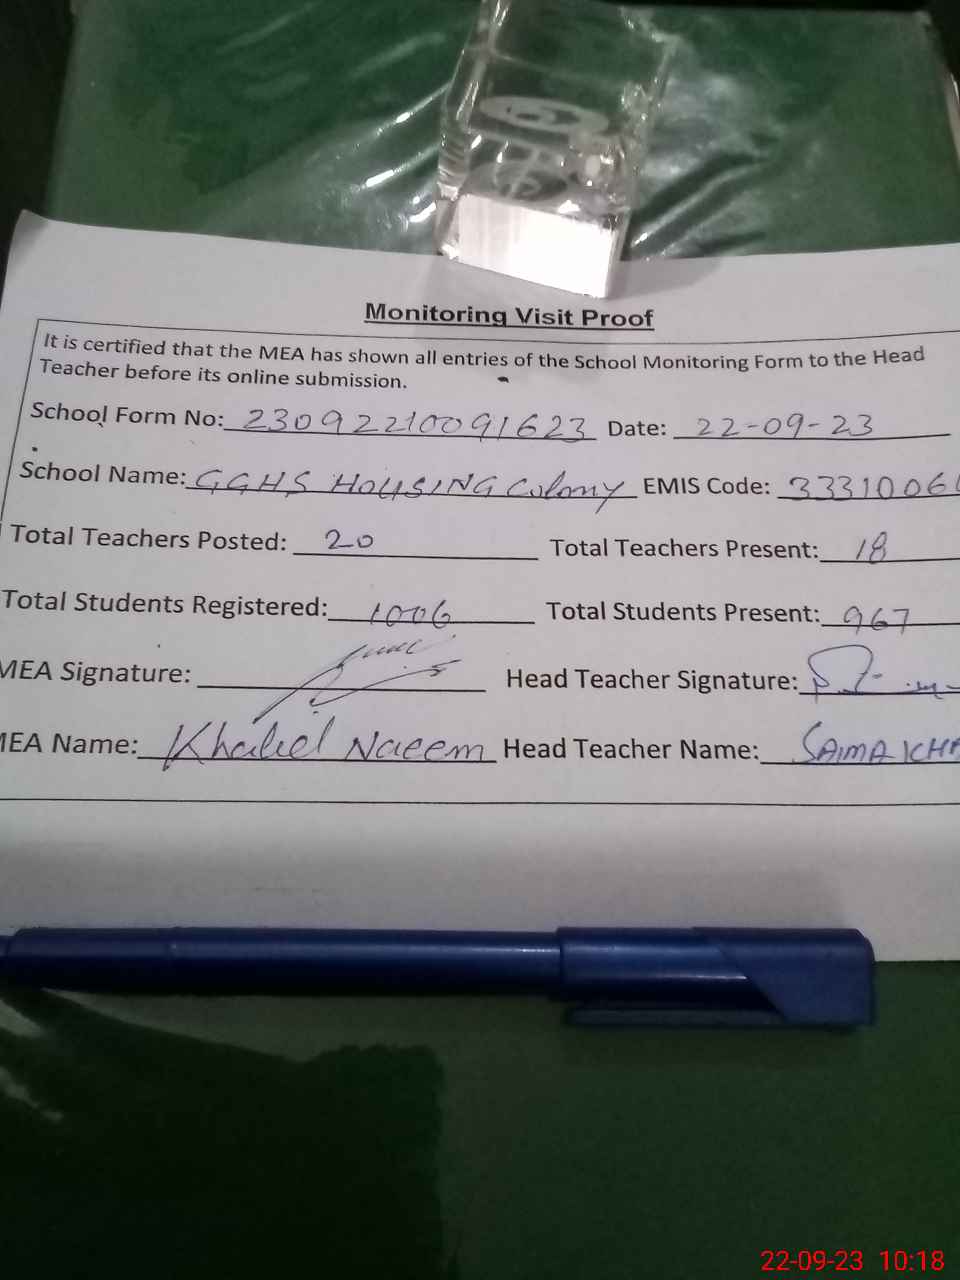 Monitoring Visit Proof
It is certified that the MEA has shown all entries of the School Monitoring Form to the Head
Teacher before its online submission.
School Form No: 23092210091623 Date: 22-09-23
School Name: GGHS HOUSING Colony EMIS Code: 3331006
Total Teachers Posted: 20 Total Teachers Present: 18
Total Students Registered: 1006 Total Students Present: 967
MEA Signature: Head Teacher Signature:
MEA Name: Khalid Naeem Head Teacher Name: SAIMA
22-09-23 10:18